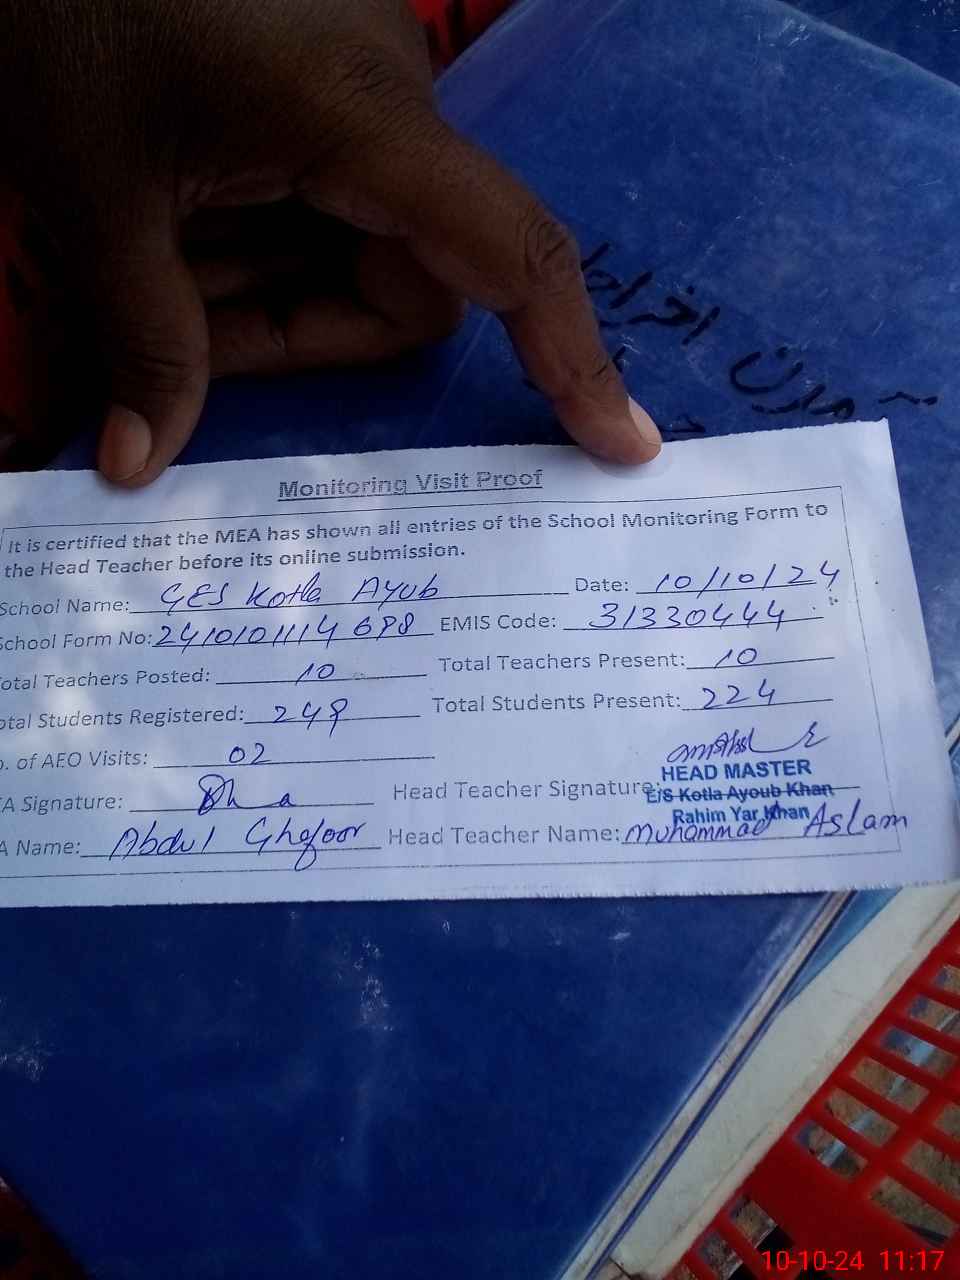 آمدن اخراجات
Monitoring Visit Proof
It is certified that the MEA has shown all entries of the School Monitoring Form to
the Head Teacher before its online submission.
School Name: GES Kotla Ayub Date: 10/10/24
School Form No: 2410101114698 EMIS Code: 31330444
Total Teachers Posted: 10 Total Teachers Present: 10
otal Students Registered: 249 Total Students Present: 224
. of AEO Visits: 02
A Signature: Head Teacher Signature:
HEAD MASTER
E/S Kotla Ayoub Khan
Rahim Yar Khan
A Name: Abdul Ghafoor Head Teacher Name: Muhammad Aslam
10-10-24 11:17